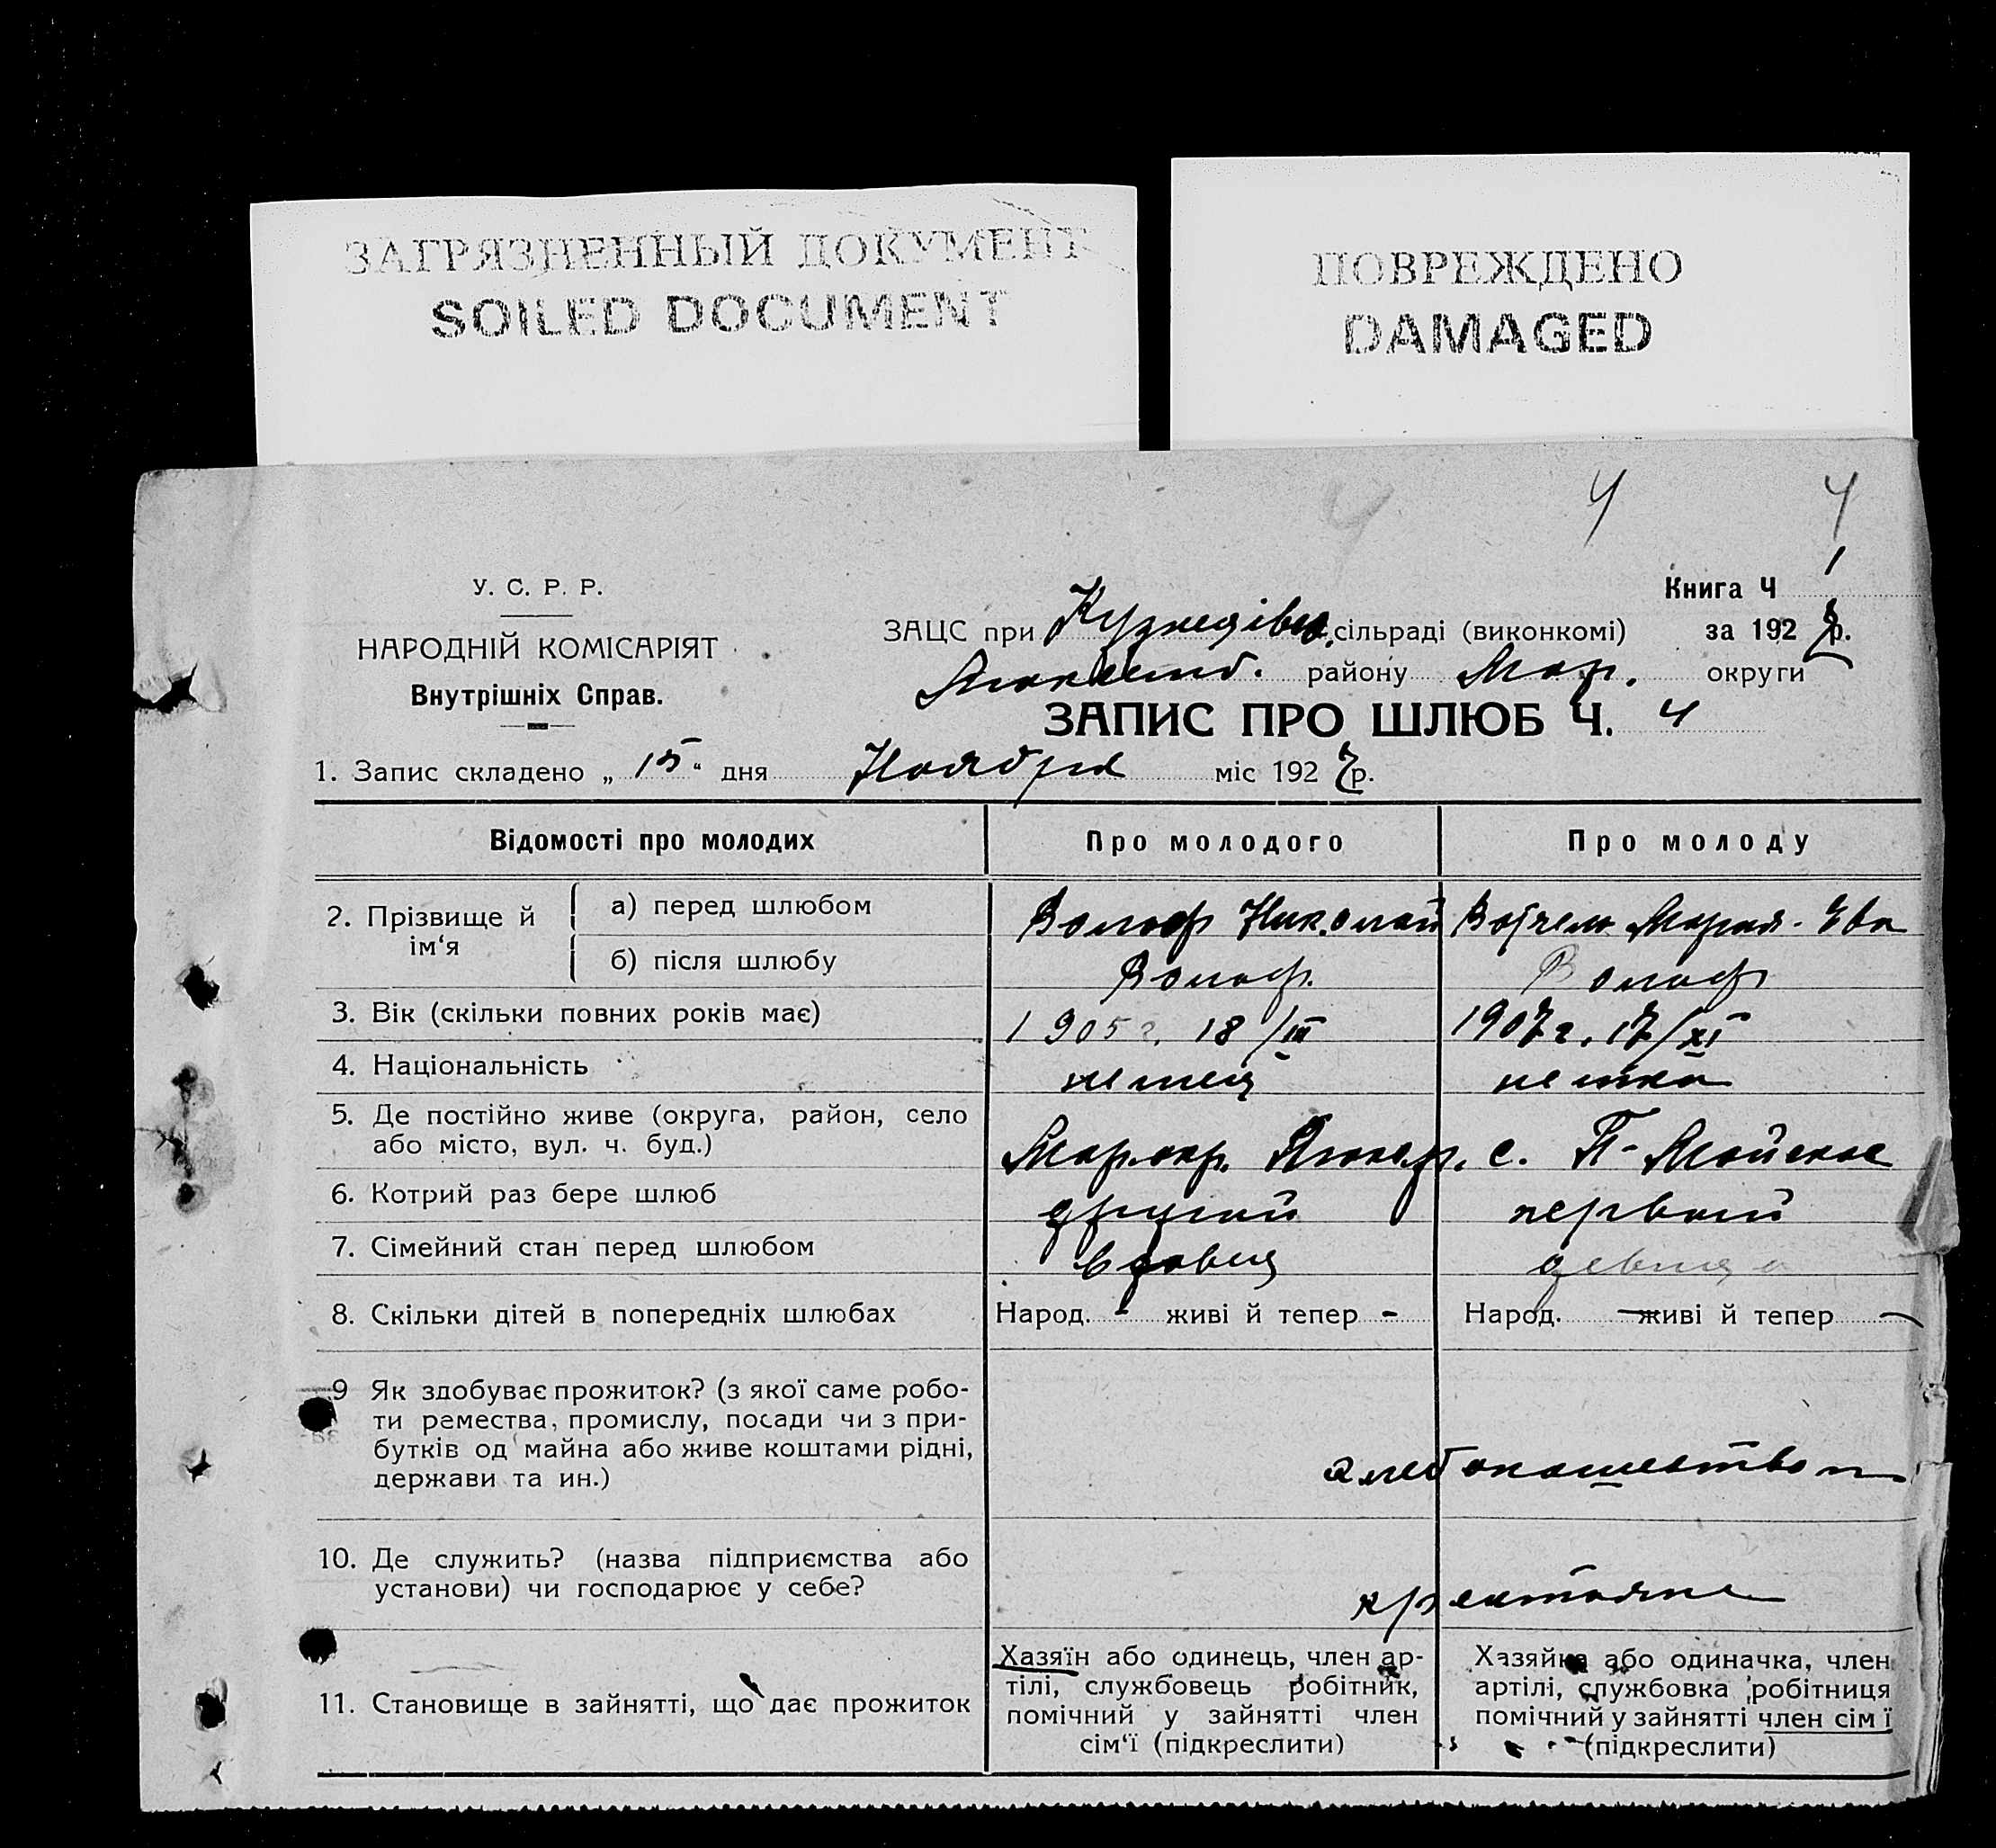 ЗАГРЯЗНЕННЫЙ ДОКУМЕНТ
SOILED DOCUMENT
ПОВРЕЖДЕНО
DAMAGED
4 4 4
У. С. Р. Р.
НАРОДНІЙ КОМІСАРІЯТ
Внутрішніх Справ.
Книга Ч 1
ЗАЦС при сільраді (виконкомі) за 1927 р.
району Мар. округи
ЗАПИС ПРО ШЛЮБ Ч. 4
1. Запис складено „ 15 “ дня Ноября міс 1927 р.
Відомості про молодих
Про молодого
Про молоду
2. Прізвище й ім‘я
а) перед шлюбом
Вольф Николай
Мария-Ева
б) після шлюбу
Вольф.
Вольф
3. Вік (скільки повних років має)
1905 г. 18/III
1907 г. 17/XI
4. Національність
немец
немка
5. Де постійно живе (округа, район, село
або місто, вул. ч. буд.)
Мар. окр. с. П-Майское
6. Котрий раз бере шлюб
другой
первый
7. Сімейний стан перед шлюбом
вдовец
девица
8. Скільки дітей в попередніх шлюбах
Народ. - живі й тепер -
Народ. — живі й тепер —
9 Як здобуває прожиток? (з якої саме робо-
ти ремества, промислу, посади чи з при-
бутків од майна або живе коштами рідні,
держави та ин.)
хлебопашеством
10. Де служить? (назва підприємства або
установи) чи господарює у себе?
крестьяне
11. Становище в зайнятті, що дає прожиток
Хазяїн або одинець, член ар-
тілі, службовець робітник,
помічний у зайнятті член
сім‘ї (підкреслити)
Хазяйка або одиначка, член
артілі, службовка робітниця
помічний у зайнятті член сім ї
(підкреслити)